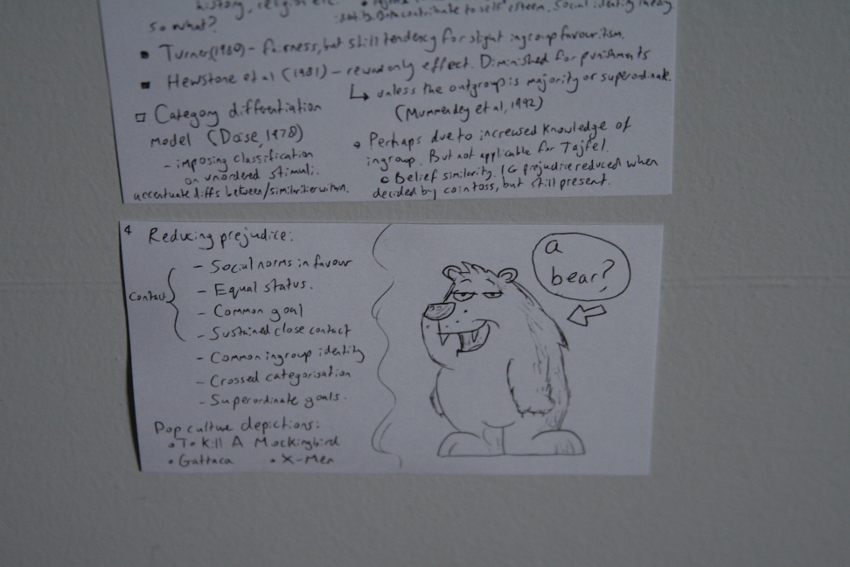 history, religion etc.
so what?
contribute to self esteem. Social identity theory
▪ Turner (1980) - fairness, but still tendency for slight ingroup favouritism.
▪ Hewstone et al (1981) - reward only effect. Diminished for punishments
↳ unless the outgroup is majority or superordinate
(Mummendey et al, 1992)
□ Category differentiation
model (Doise, 1978)
- imposing classification
on unordered stimuli.
accentuate diffs between/similarities within.
• Perhaps due to increased knowledge of
ingroup. But not applicable for Tajfel.
• Belief similarity. IG prejudice reduced when
decided by coin toss, but still present.
4 Reducing prejudice:
Contact
- Social norms in favour
- Equal status.
- Common goal
- Sustained close contact
- Common ingroup identity
- Crossed categorisation
- Superordinate goals.
Pop culture depictions:
• To Kill A Mockingbird
• Gattaca • X-Men
a
bear?